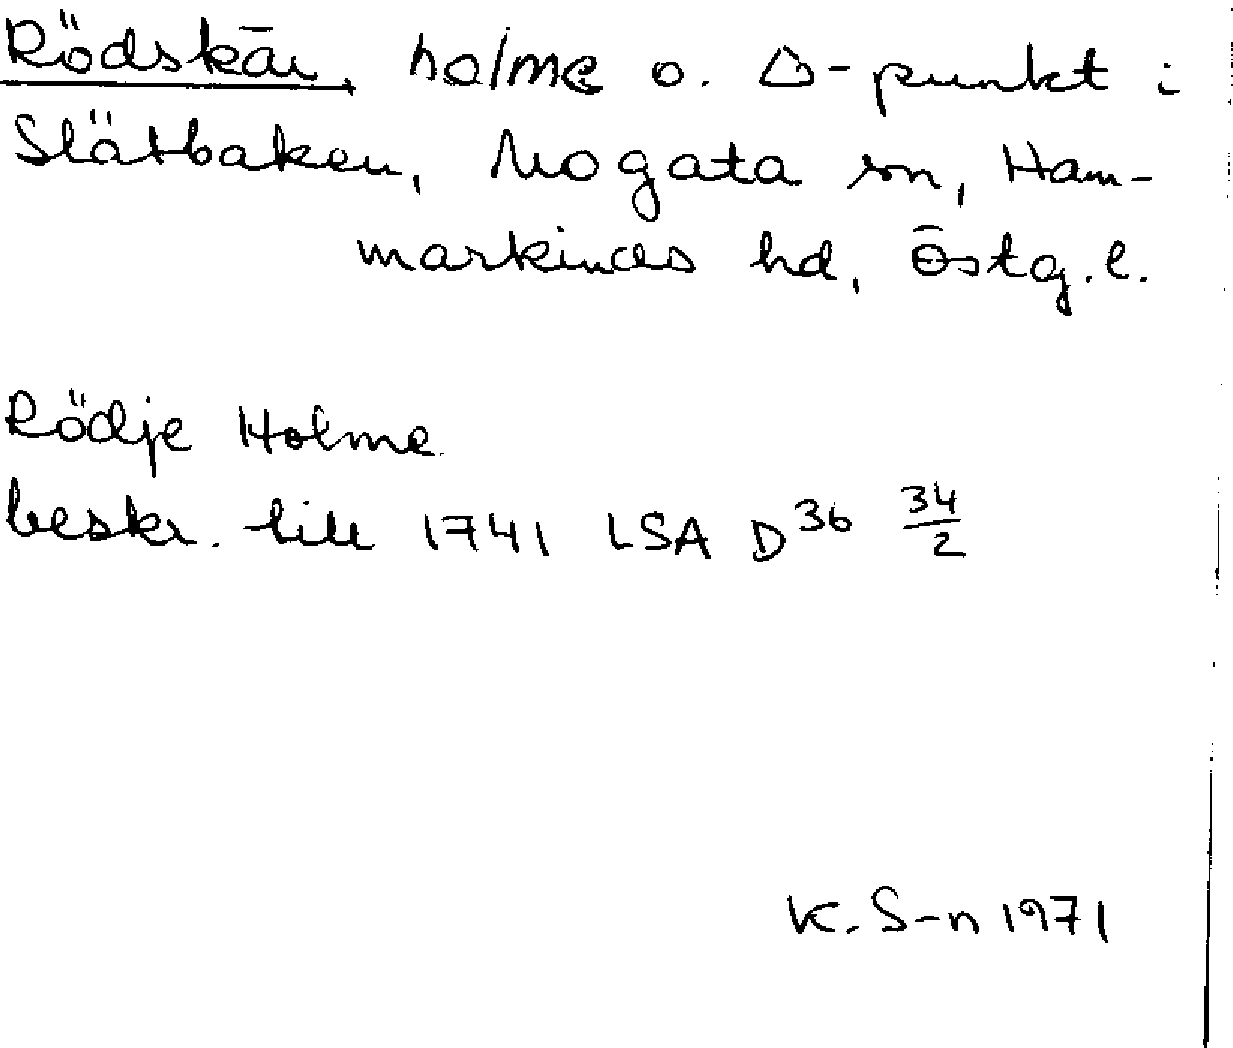 Rödskär, holme o. △-punkt i
Slätbaken, Mogata sn, Ham-
markindes hd, Östg. l.
Rödje Holme
beskr. till 1741 LSA D36 34/2
K. S-n 1971